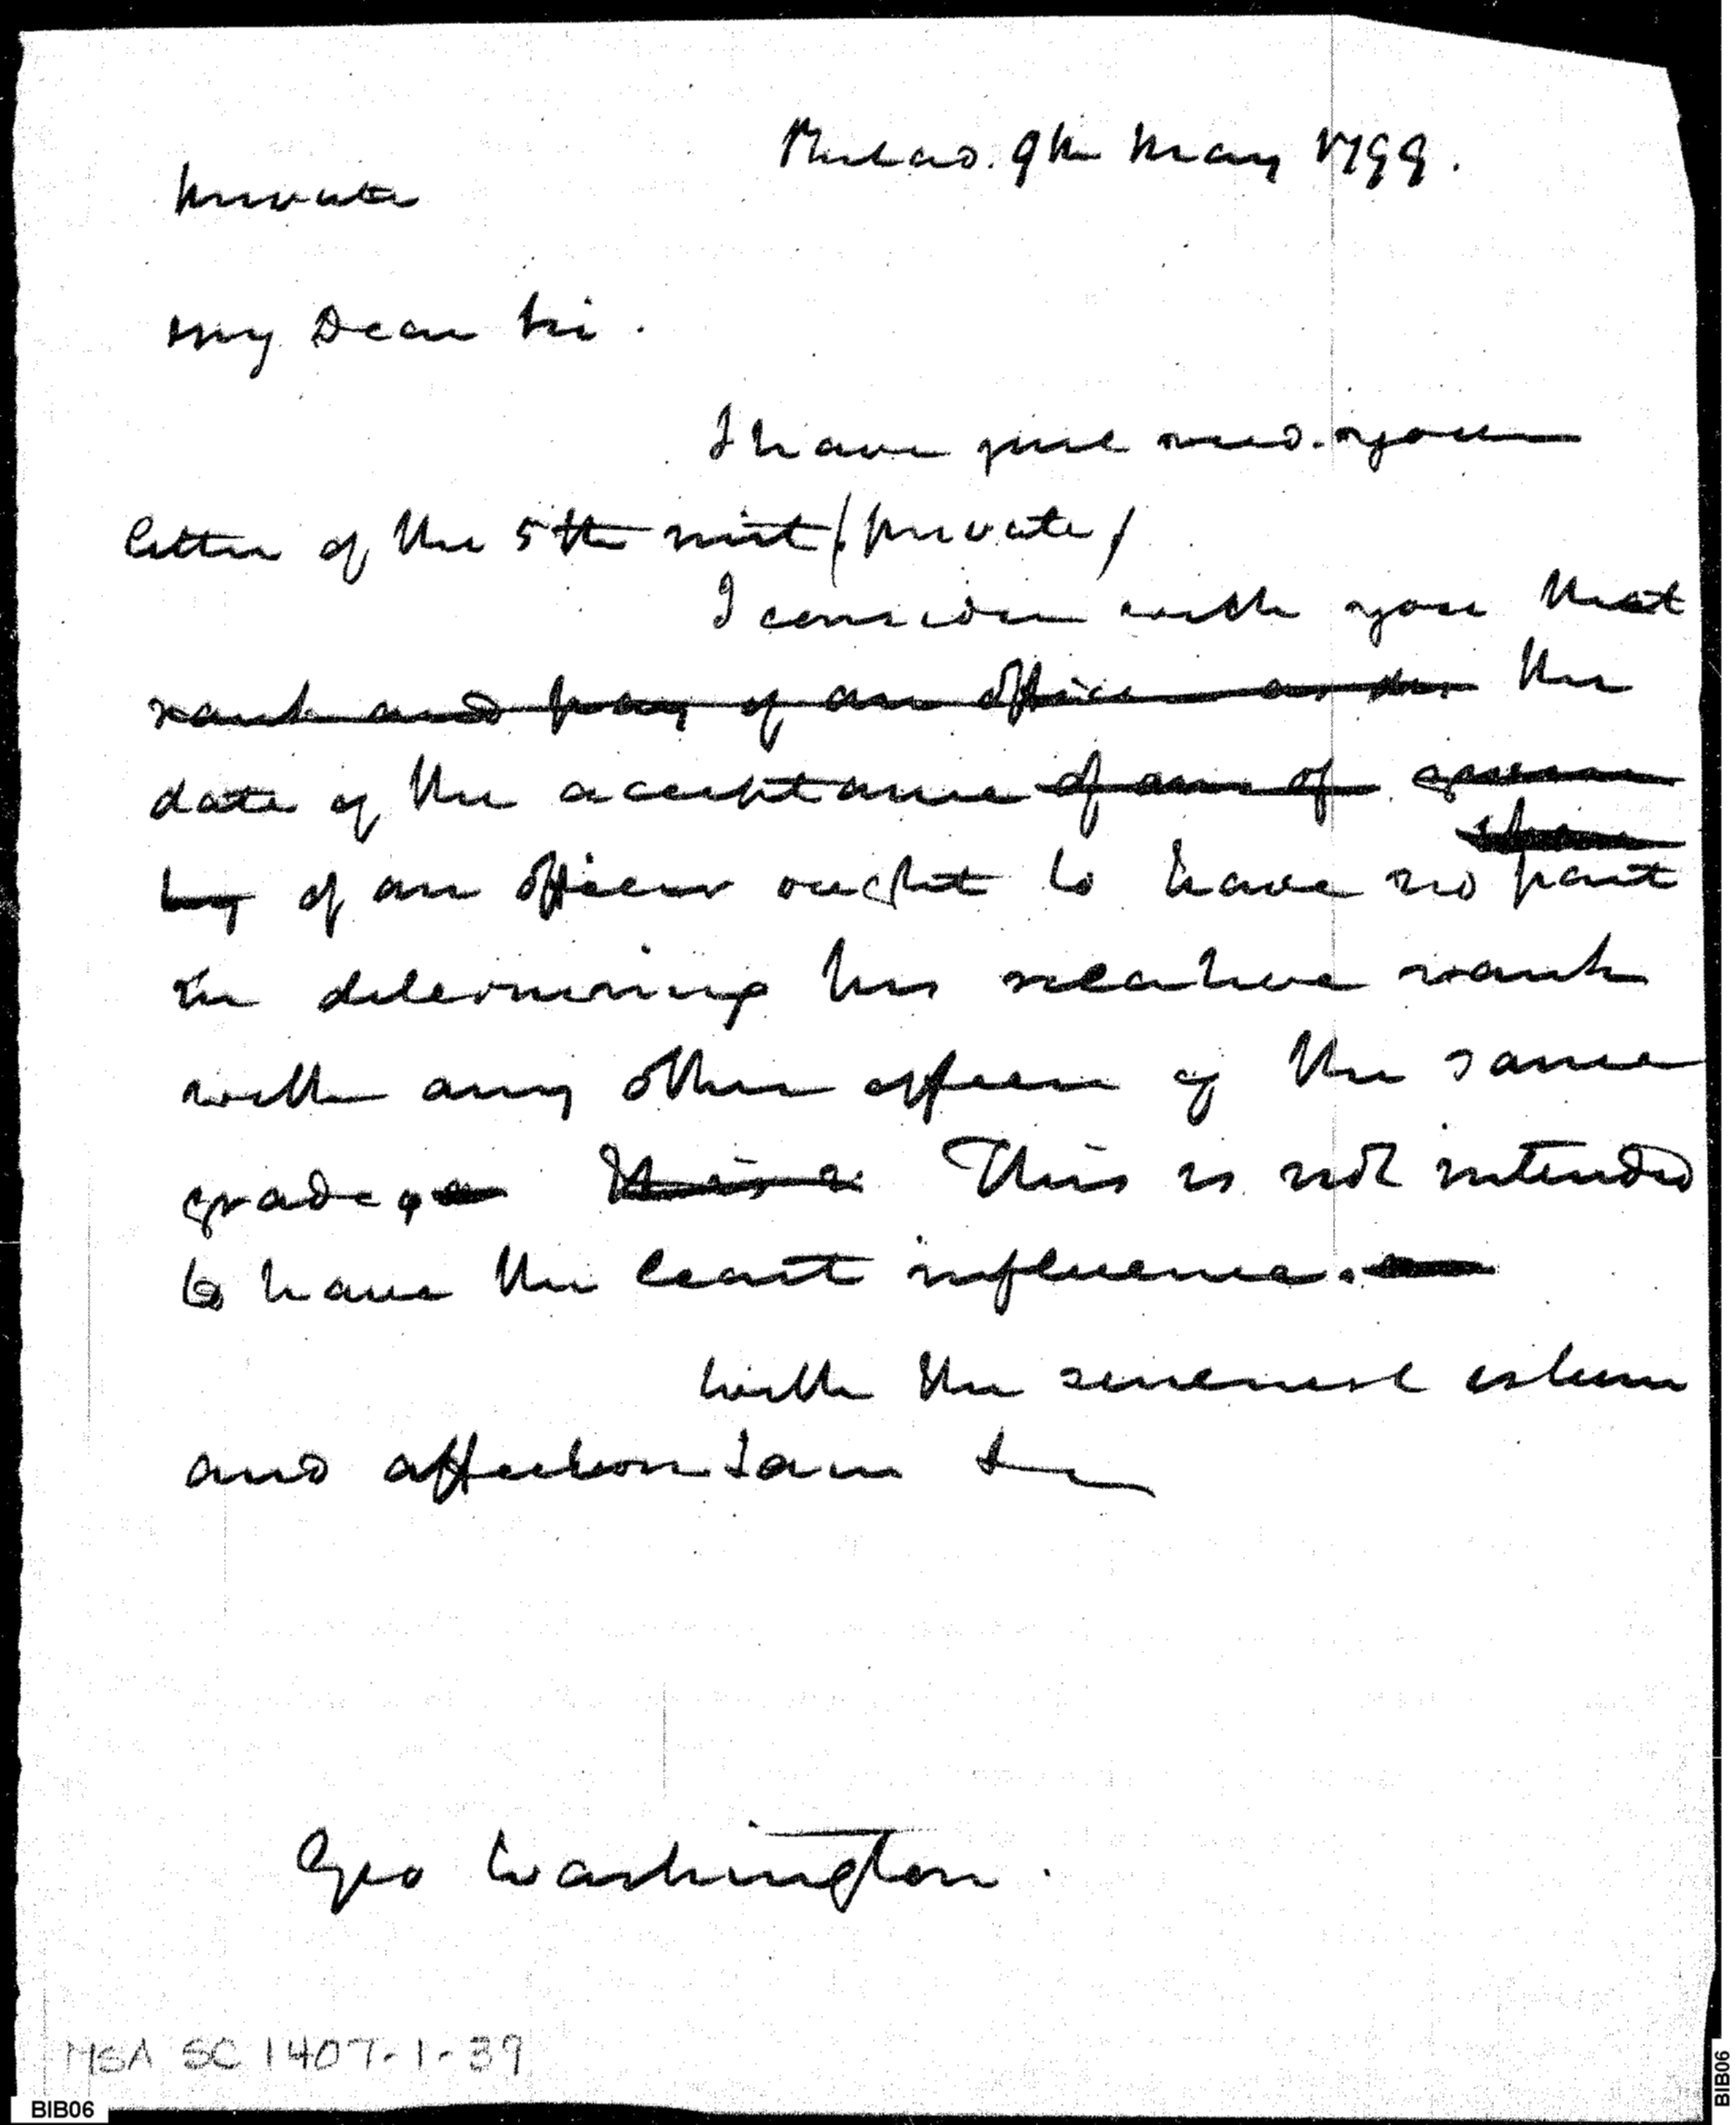 Philad. 9th May 1799.
Private
My Dear Sir.
I have just recd. your
letter of the 5th inst (private)
I consider with you that
rank and pay of an officer as the
date of the acceptance of an of
by of an officer ought to have no part
in determining his relative rank
with any other officer of the same
grade, It is a This is not intended
to have the least influence.
With the sincerest esteem
and affection I am &
Geo Washington.
MSA SC 1407-1-39
BIB06
BIB06